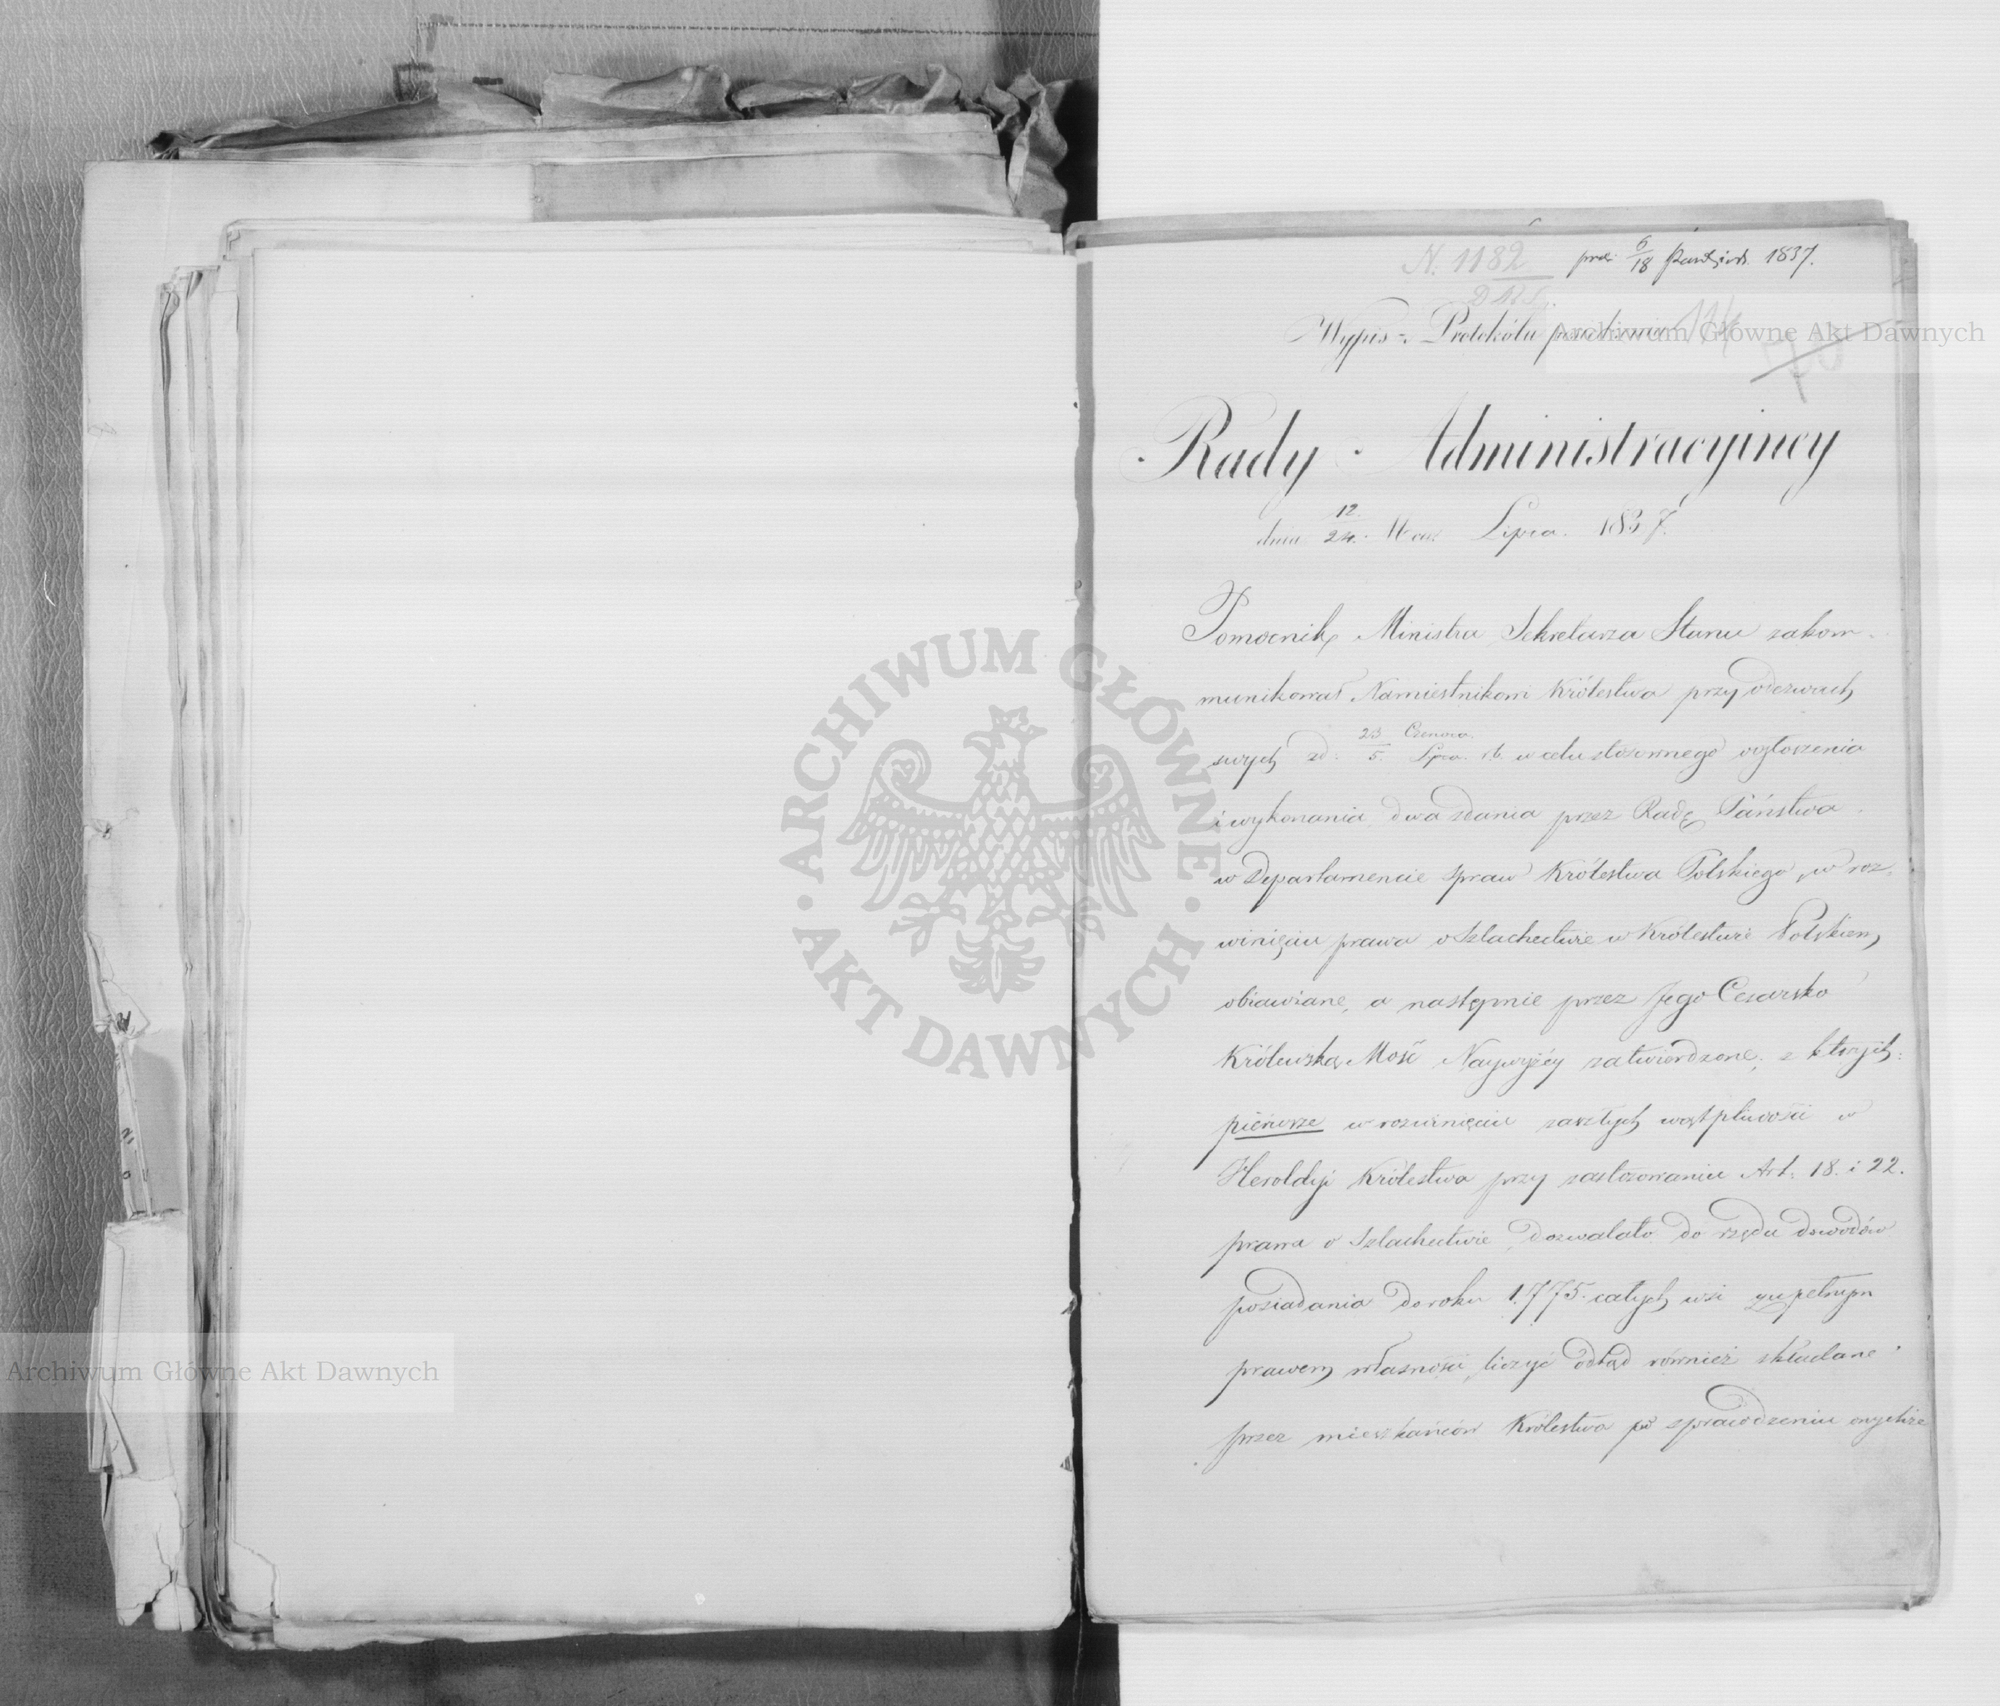 N. 1182 pro: 6/18 Paździer. 1837.
D.N.S.
Wypis z Protokółu posiedzenia 114
Rady Administracyiney
dnia 12/24. Mca Lipca. 1837.
Pomocnik Ministra Sekretarza Stanu zakom-
munikował Namiestnikowi Królestwa przy odezwach
swych zd: 23 Czerwca / 5. Lipca r.b. w celu stosownego ogłoszenia
i wykonania, dwa zdania przez Radę Państwa
w Departamencie spraw Królestwa Polskiego, w roz-
winięciu prawa o Szlachectwie w Królestwie Polskiem
obiawiane, a następnie przez Jego Cesarsko
Królewską Mość Naywyżey zatwierdzone; z których:
piérwsze w rozwinięciu zaszłych wątpliwości w
Heroldyi Królestwa przy zastosowaniu Art. 18. i 22.
prawa o Szlachectwie, dozwalało do rzędu dowodów
posiadania do roku 1775. całych wsi zupełnym
prawem własności, liczyć odtąd również składane
przez mieszkańców Królestwa po sprawdzeniu onychże
Archiwum Główne Akt Dawnych
Archiwum Główne Akt Dawnych
ARCHIWUM GŁÓWNE
AKT DAWNYCH